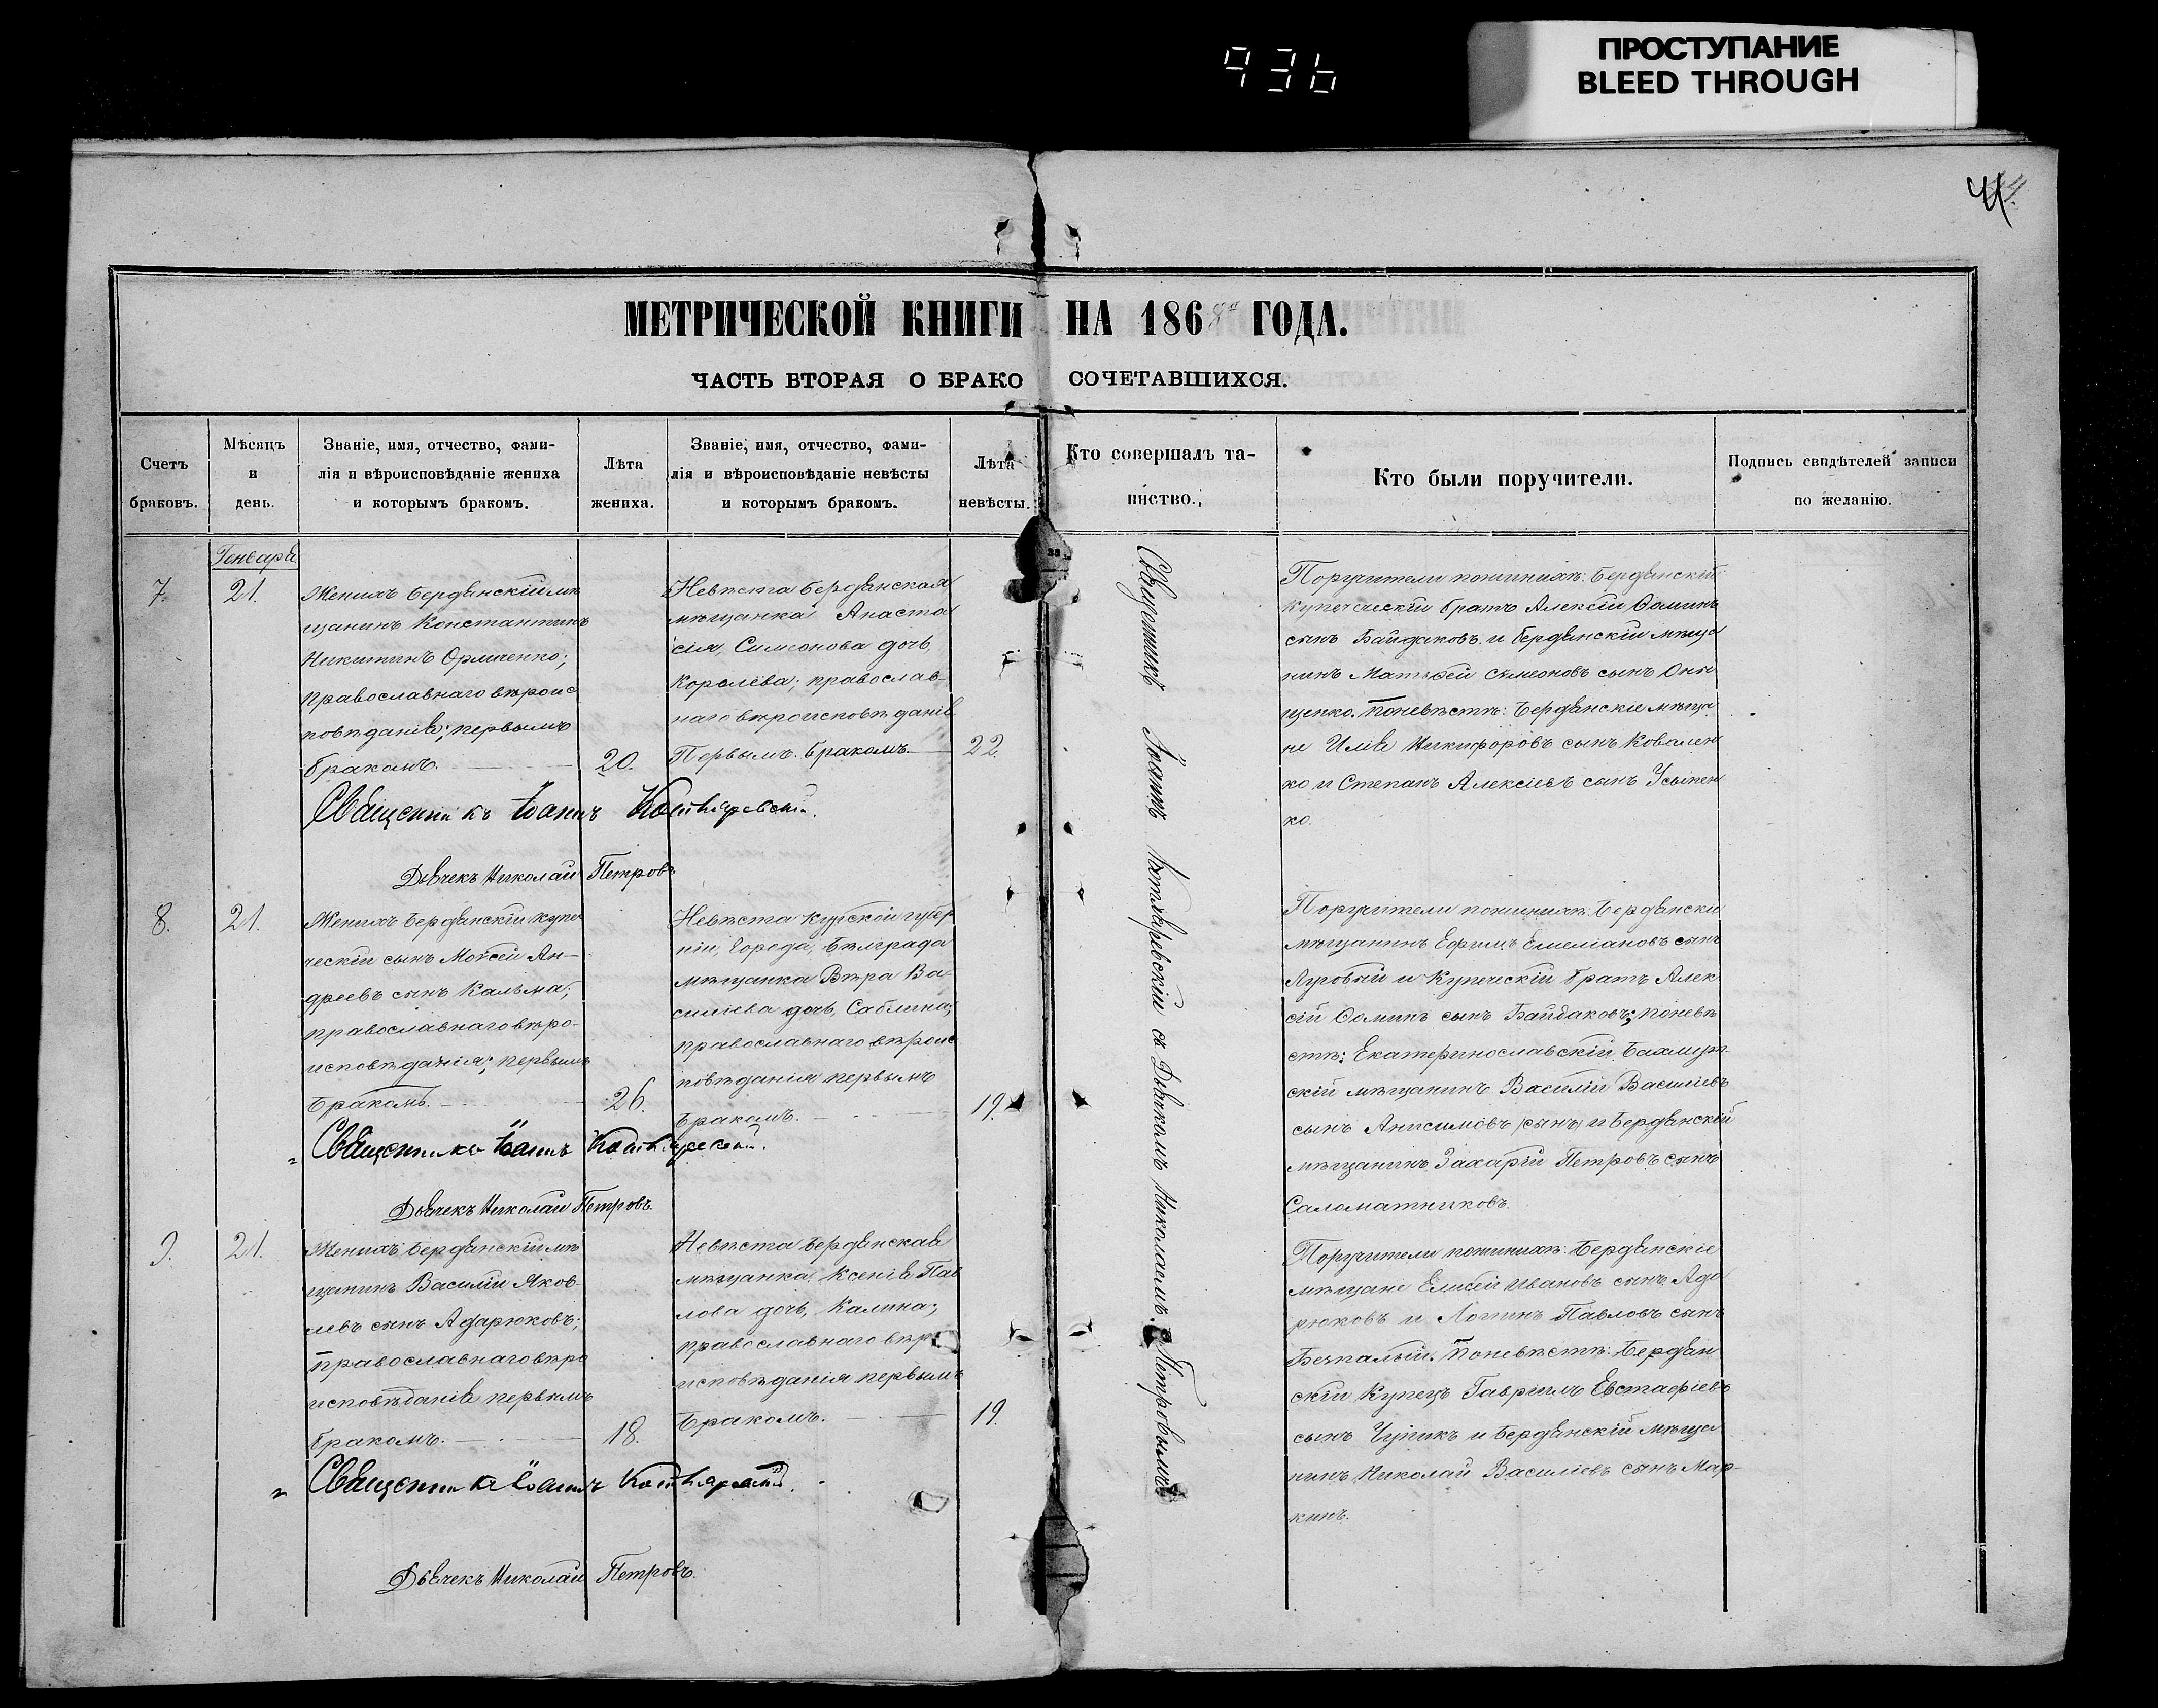 936
ПРОСТУПАНИЕ
BLEED THROUGH
МЕТРИЧЕСКОЙ КНИГИ НА 1868 ГОДА.
ЧАСТЬ ВТОРАЯ О БРАКОСОЧЕТАВШИХСЯ.
Счетъ браковъ.
Мѣсяцъ и день.
Званіе, имя, отчество, фами-
лія и вѣроисповѣданіе жениха
и которымъ бракомъ.
Лѣта жениха.
Званіе, имя, отчество, фами-
лія и вѣроисповѣданіе невѣсты
и которымъ бракомъ.
Лѣта невѣсты.
Кто совершалъ та-
инство.
Кто были поручители.
Подпись свидѣтелей записи
по желанію.
Генваря
7.
21.
Женихъ Бердянскій мѣ
щанинъ Константинъ
Никитинъ Орличенко;
православнаго вѣроис
повѣданія; первымъ
бракомъ.
20.
Невѣста Бердянская
мѣщанка Анаста
сія, Симеонова дочь,
Королева; православ-
наго вѣроисповѣданія
Первымъ бракомъ
22.
Священникъ Іоаннъ
Дьячекъ Николай Петровъ
Священникъ Іоаннъ съ Дьячкомъ Николаемъ Петровымъ
Поручители пожинихѣ: Бердянскій
купеческій братъ Алексій Ѳоминъ
сынъ Байдаковъ и Бердянскій мѣща
нинъ Матвѣй Симеоновъ сынъ Они
щенко. Поневѣстѣ: Бердянскіе мѣща
не Илія Никифоровъ сынъ Ковален
ко и Степанъ Алексіевъ сынъ Усыпен
ко.
8.
21.
Женихъ Бердянскій купе
ческій сынъ Моѵсей Ан-
дреевъ сынъ Кальма;
православнаго вѣро-
исповѣданія; первымъ
Бракомъ.
26.
Невѣста Курской губер
ніи, города, Бѣлграда
мѣщанка Вѣра Ва-
силіева дочь, Саблина;
православнаго вѣроис
повѣданія первымъ
бракомъ.
19.
Священникъ Іоаннъ
Дьячекъ Николай Петровъ
Поручители пожинихѣ: Бердянски
мѣщанинъ Ефимъ Емеліановъ сынъ
Луговый и Купеческій братъ Алек
сій Ѳоминъ сынъ Байдаковъ; поневѣ
стѣ: Екатеринославскій Бахмут-
скій мѣщанинъ Василій Василіевъ
сынъ Анисимовъ (сынъ) и Бердянскій
мѣщанинъ Захарій Петровъ сынъ
Саломатниковъ.
9.
21.
Женихъ: Бердянскій мѣ
щанинъ Василій Яков
левъ сынъ Адарюковъ;
православнаго вѣро
исповѣданія первымъ
бракомъ.
18.
Невѣста Бердянская
мѣщанка, Ксенія Пав
лова дочь, Калина;
православнаго вѣро
исповѣданія первымъ
Бракомъ.
19.
Священникъ Іоаннъ
Дьячекъ Николай Петровъ.
Поручители пожинихѣ: Бердянскіе
мѣщане Елисей Ивановъ сынъ, Ада
рюковъ и Логинъ Павловъ сынъ
Безпалый. Поневѣстѣ: Бердян
скій Купецъ Гавріилъ Евстафіевъ
сынъ Чупикъ и Бердянскій мѣща
нинъ, Николай Василіевъ сынъ Мар-
кинъ.